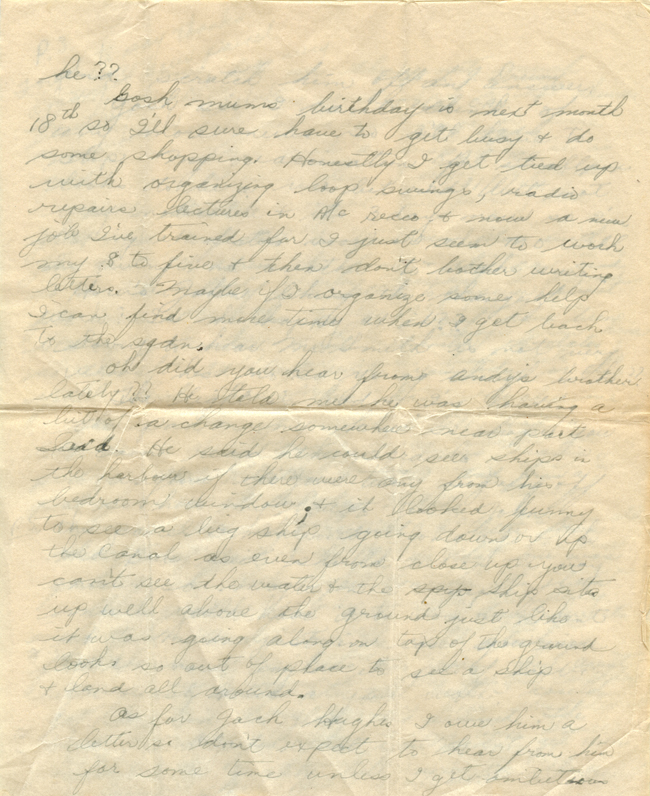 he??
Gosh mums birthday is next month
18th so I'll sure have to get busy & do
some shopping. Honestly I get tied up
with organizing loop swings, radio
repairs lectures in A/c recco & now a new
job I've trained for I just seem to work
my 8 to five & then don't bother writing
letters. Maybe if I organize some help
I can find more time when I get back
to the sqdn.
Oh did you hear from Andy's brother
lately?? He told me he was having a
bit of a change somewhere near port
Said. He said he could see ships in
the harbour if there were any from his
bedroom window & it looked funny
to see a big ship going down or up
the canal as even from close up you
can't see the water & the ship sits
up well above the ground just like
it was going along on top of the ground
looks so out of place to see a ship
& land all around.
As for Jack Hughes I owe him a
letter so don't expect to hear from him
for some time unless I get ambitious